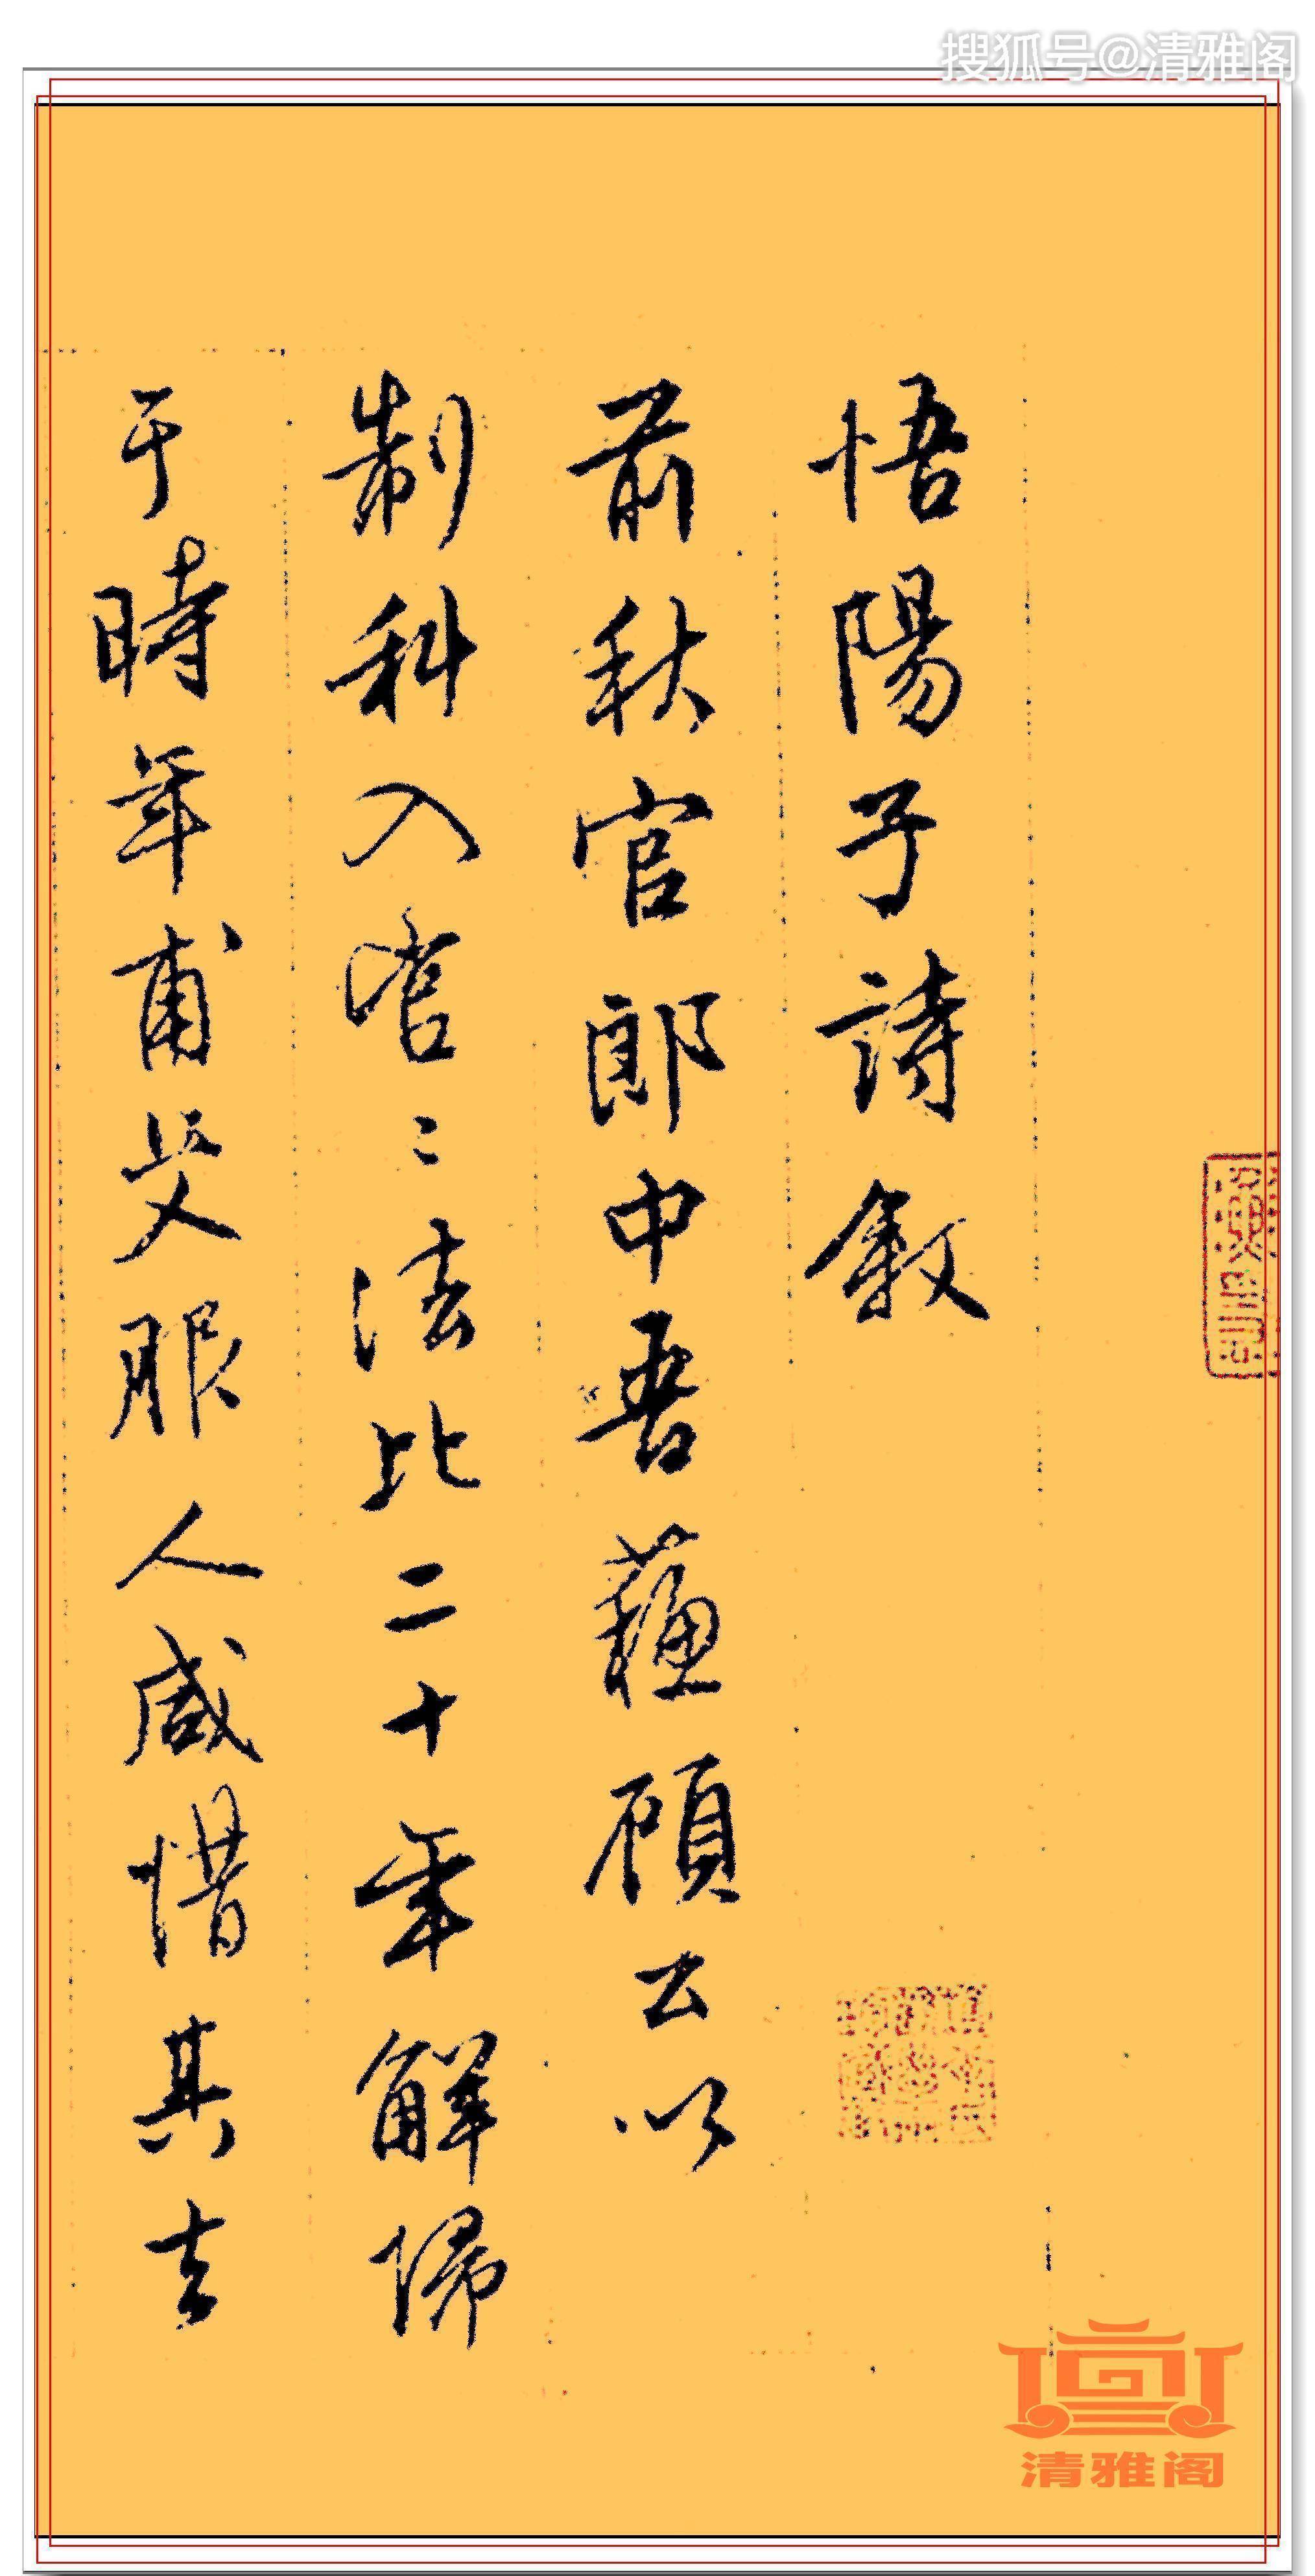 搜狐号@清雅阁
悟陽子詩敘
前秋官郎中吾蘓顧公以
制科入官〻法比二十年解歸
于時年甫艾服人咸惜其去
清雅阁